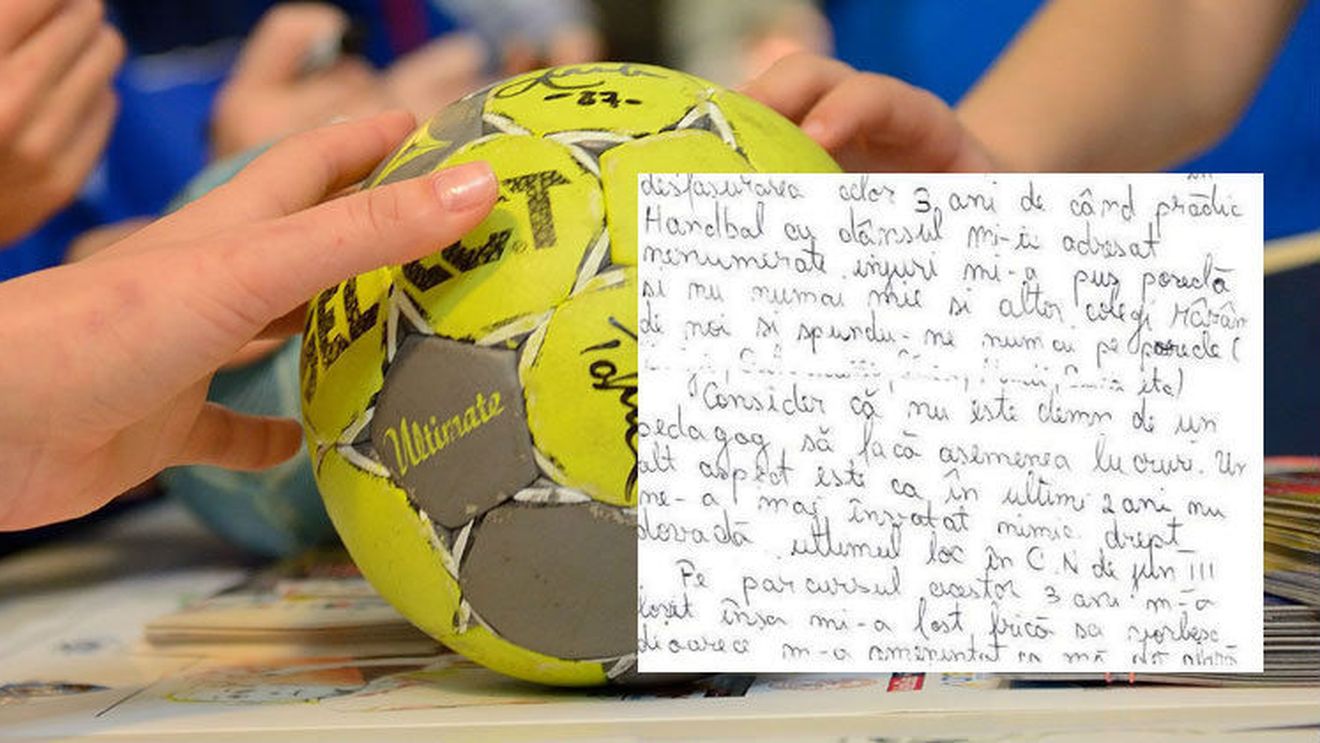 -27-
SELECT
Ultimate
desfasurarea celor 3 ani de când prădic
Handbal cu dânsul mi-a adresat
nenumerate injuri mi-a pus poreclă
si nu numai mie si altor colegi
de noi si spundu-ne numai pe porecle (
etc)
Consider că nu este demn de un
pedagog să facă asemenea lucruri. Un
alt aspect este ca în ultimi 2 ani nu
ne-a mai învatat nimic drept
dovadă ultimul loc în C.N de jun III
Pe parcursul acestor 3 ani m-a
însa mi-a fost frică sa vorbesc
deoarece m-a amenintat ca mă dă afară